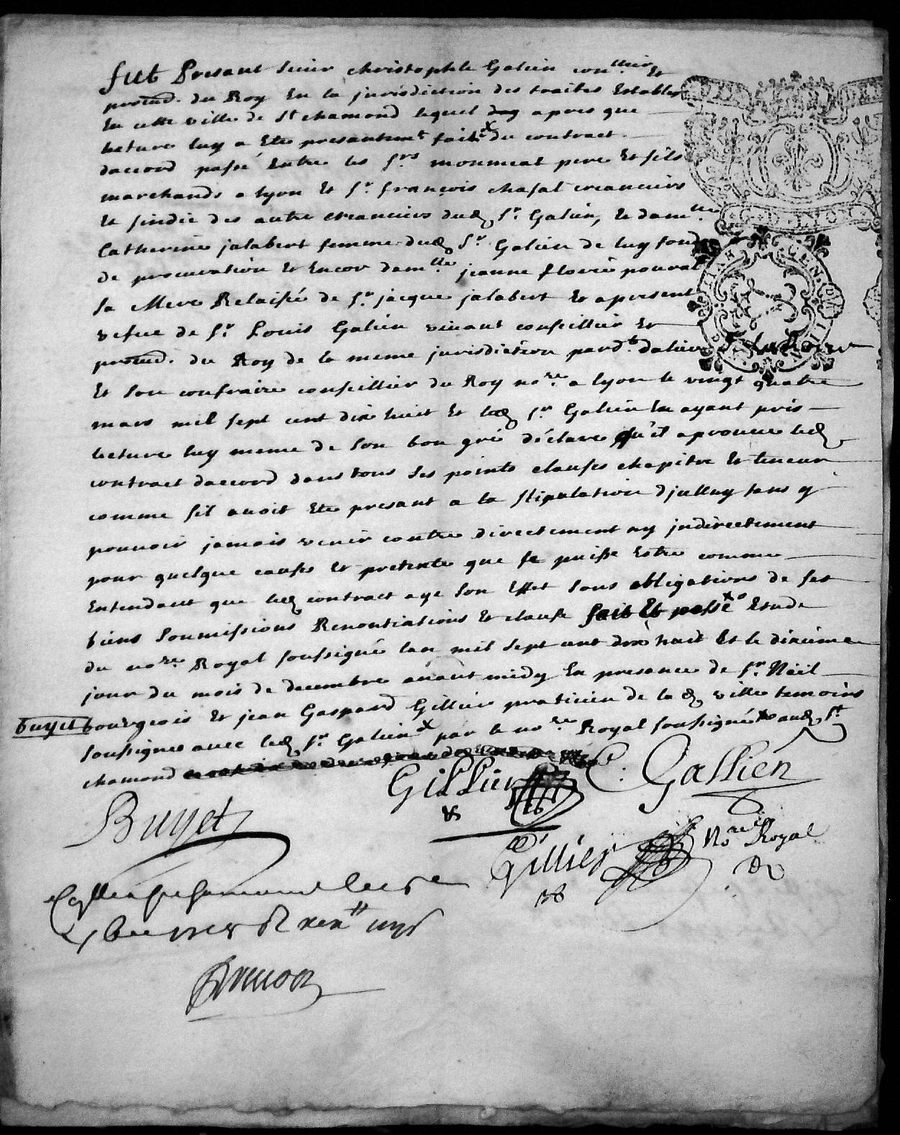 fut Presant sieur christophle Galien con.llier Et
procu.r du Roy En la jurisdiction des traites Establye
En cette ville de St chamond lequel apres que
lecture luy a Ete presantem.t faite du contract
daccord passé Entre les S.rs monmeat pere Et fils
marchands a lyon Et S.r françois chasal creanciers
Et sindic des autre creanciers dud S.r Galien, Et dam.lle
Catherine jalabert femme dud S.r Galien de luy fondé
de procuration Et Encor dam.lle jeanne florie pourat
sa Mere Relaissé de S.r jacque jalabert Et a present
vefve de S.r Louis Galien vivant conseillier Et
procu.r du Roy de la meme jurisdiction pard.t
Et son confraire conseillier du Roy no.re a lyon le vingt quatre
mars mil sept cent dix huit Et led S.r Galien En ayant pris
lecture luy meme de son bon gré declare qu'il aprouve led
contract daccord dans tous ses points clauses chapitre Et teneur
comme sil avoit Ete presant a la stipulation djelluy sans y
pouvoir jamais venir contre directement ny indirectement
pour quelque cause Et pretexte que se puisse Estre comme
Entendant que led contract aye son Effet sous obligations de ses
biens soumissions Renontiations Et clause fait Et passé Etude
du no.re Royal soussigné lan mil sept cent dix huit Et le dixieme
jour du mois de decembre avant midy En presence de S.r Noil
buyet bourgeois Et jean Gaspard Gillier praticien de lad ville temoins
soussignes avec led S.r Galien par le no.re Royal soussigné aud S.t
chamond
Gillier C. Gallien
Buyet
Gillier No.re Royal